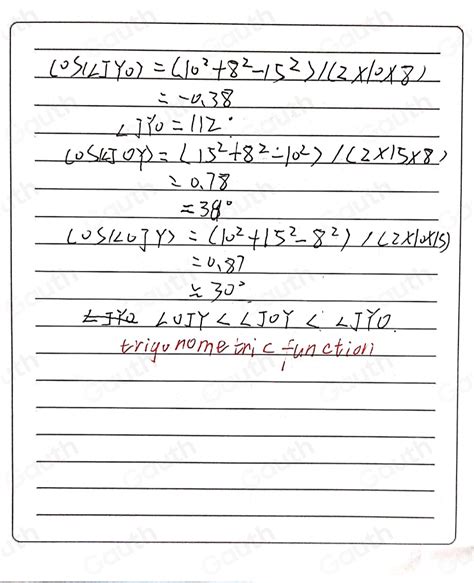 cos(∠JYO) = (10²+8²-15²)/(2×10×8)
= -0.38
∠JYO = 112°
cos(∠JOY) = (15²+8²-10²)/(2×15×8)
≈ 0.78
≈ 38°
cos(∠OJY) = (10²+15²-8²)/(2×10×15)
= 0.87
≈ 30°
∠OJY < ∠JOY < ∠JYO.
trigonometric function